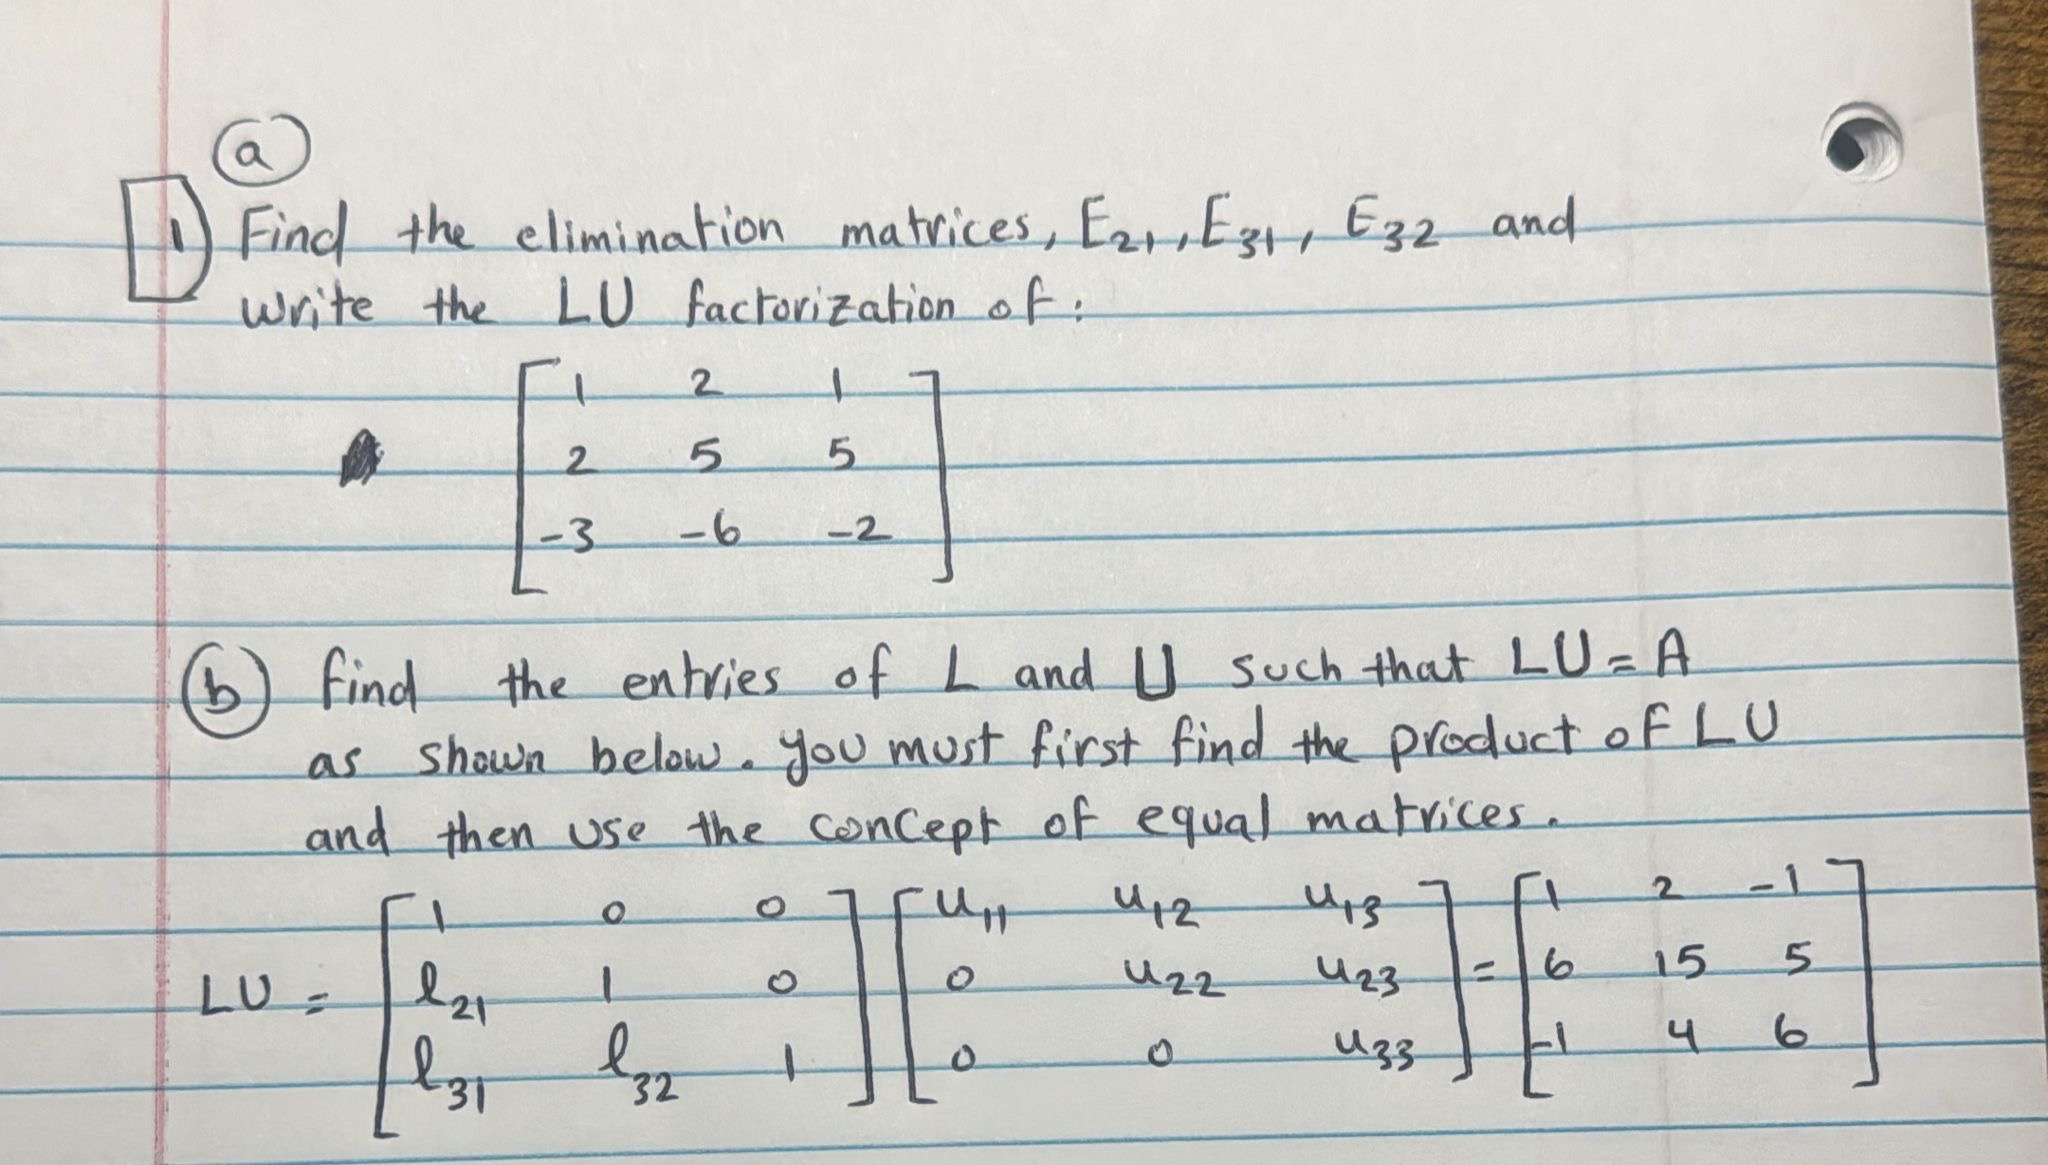 a
1) Find the elimination matrices, E₂₁, E₃₁, E₃₂ and
write the LU factorization of:
1 2 1
2 5 5
-3 -6 -2
b find the entries of L and U such that LU = A
as shown below. You must first find the product of LU
and then use the concept of equal matrices.
LU = [1 0 0; l₂₁ 1 0; l₃₁ l₃₂ 1] [u₁₁ u₁₂ u₁₃; 0 u₂₂ u₂₃; 0 0 u₃₃] = [1 2 -1; 6 15 5; -1 4 6]